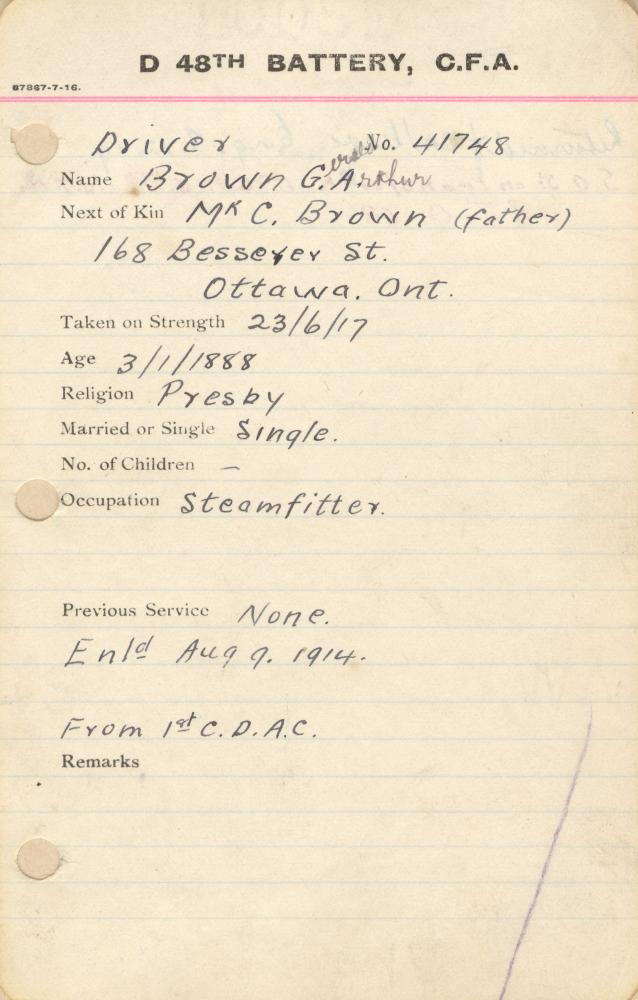 D 48TH BATTERY, C.F.A.
87867-7-16.
Driver No. 41748
Name Brown G.erald Arthur
Next of Kin Mr C. Brown (father)
168 Besserer St.
Ottawa. Ont.
Taken on Strength 23/6/17
Age 3/1/1888
Religion Presby
Married or Single Single.
No. of Children –
Occupation Steamfitter.
Previous Service None.
Enld Aug 9. 1914.
From 1st C.D.A.C.
Remarks